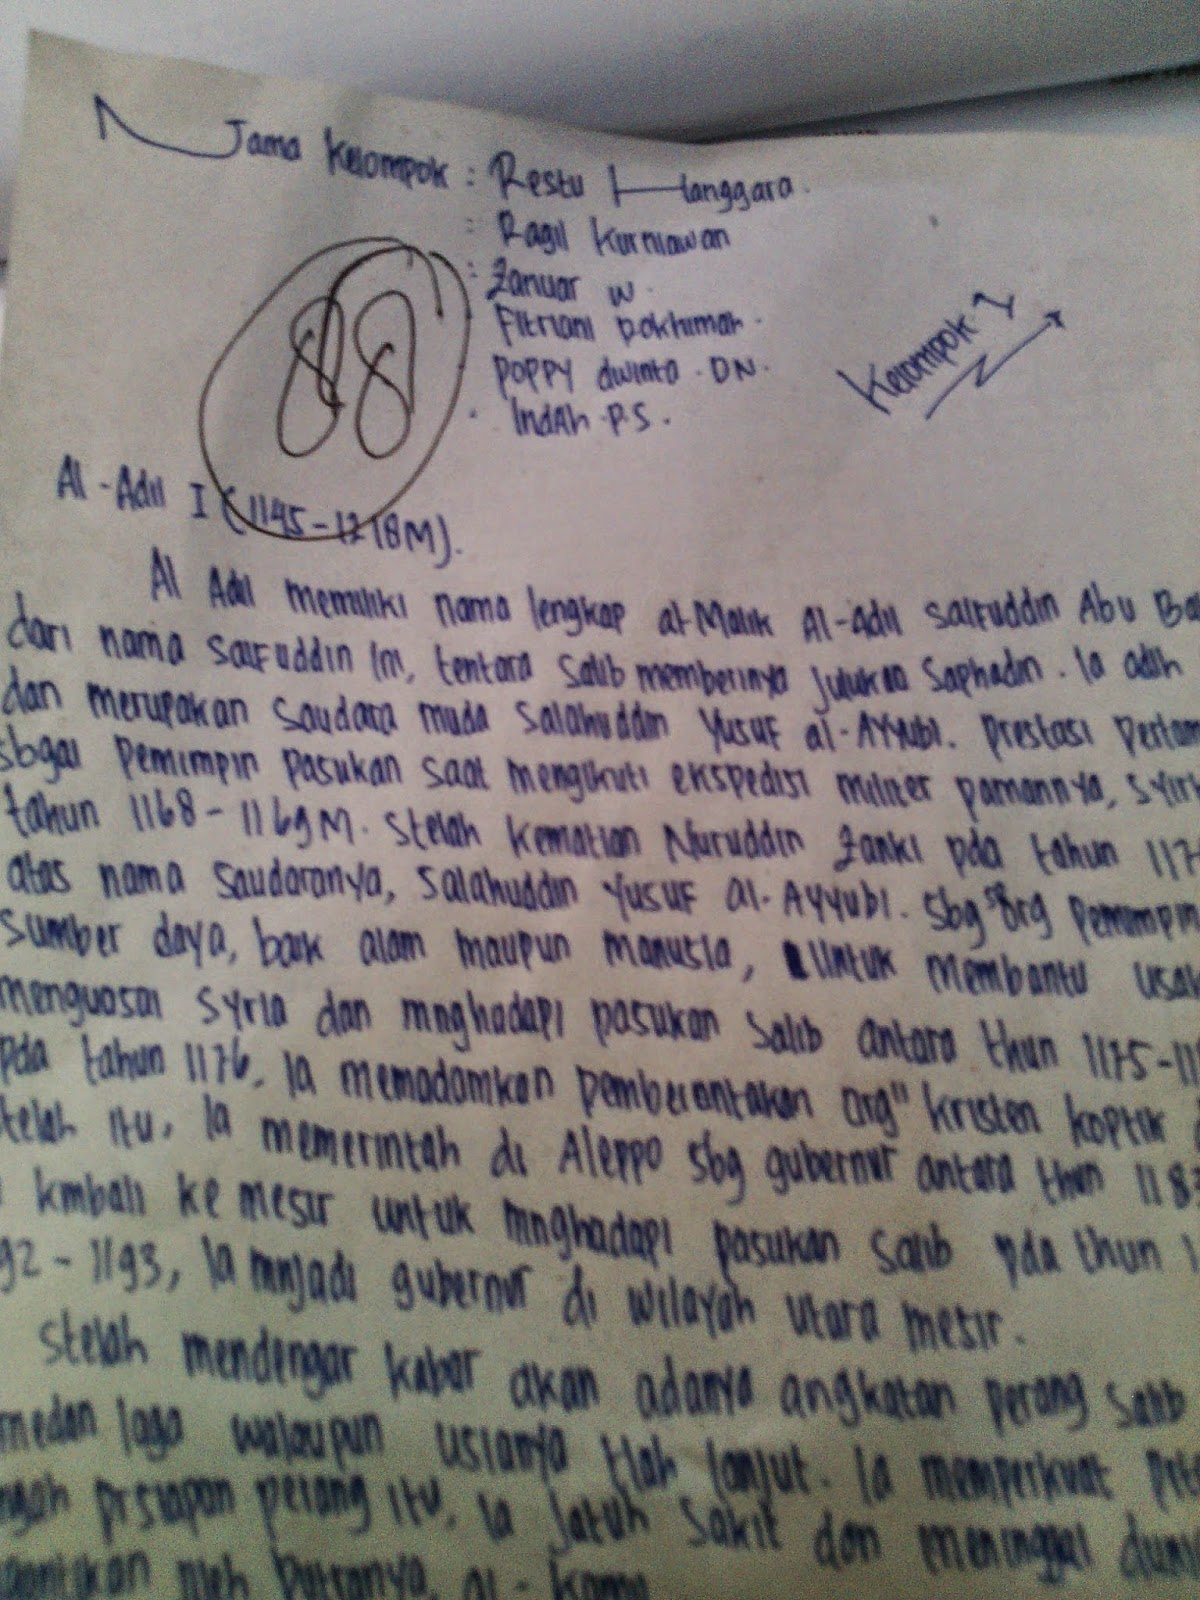 Nama Kelompok : Restu Hanggara.
: Ragil Kurniawan
: Zanuar W.
Fitriani Rokhimah.
Poppy dwinta. DN.
. IndAh. P.S.
Kelompok 1
88
Al-Adil I (1145-1218M).
Al Adil memiliki nama lengkap al-Malik Al-adil Saifuddin Abu Ba
dari nama Saifuddin ini, tentara Salib memberinya julukan Saphadin. Ia adih
dan merupakan saudara muda Salahuddin Yusuf al-Ayyubi. Prestasi pertam
sbgai Pemimpin pasukan saat mengikuti ekspedisi militer pamannya, Syirk
tahun 1168-1169M. Stelah kematian Nuruddin Zanki pda tahun 117
atas nama saudaranya, Salahuddin Yusuf al-Ayyubi. Sbg Srg Pemimpin
Sumber daya, baik alam maupun manusia, Untuk membantu usah
menguasai Syria dan mnghadapi pasukan salib antara thun 1175-11
pda tahun 1176, Ia memadamkan pemberontakan org" kristen koptik
telah itu, Ia memerintah di Aleppo sbg gubernur antara thun 118
kmbali ke mesir untuk mnghadapi pasukan salib pda thun 1
92-1193, Ia mnjadi gubernur di wilayah utara mesir.
Stelah mendengar kabar akan adanya angkatan perang salib
medan laga walaupun usianya tlah lanjut. Ia memperkuat
ngah prsiapan perang itu, Ia jatuh sakit dan meninggal duni
gantikan oleh putranya, al-kami